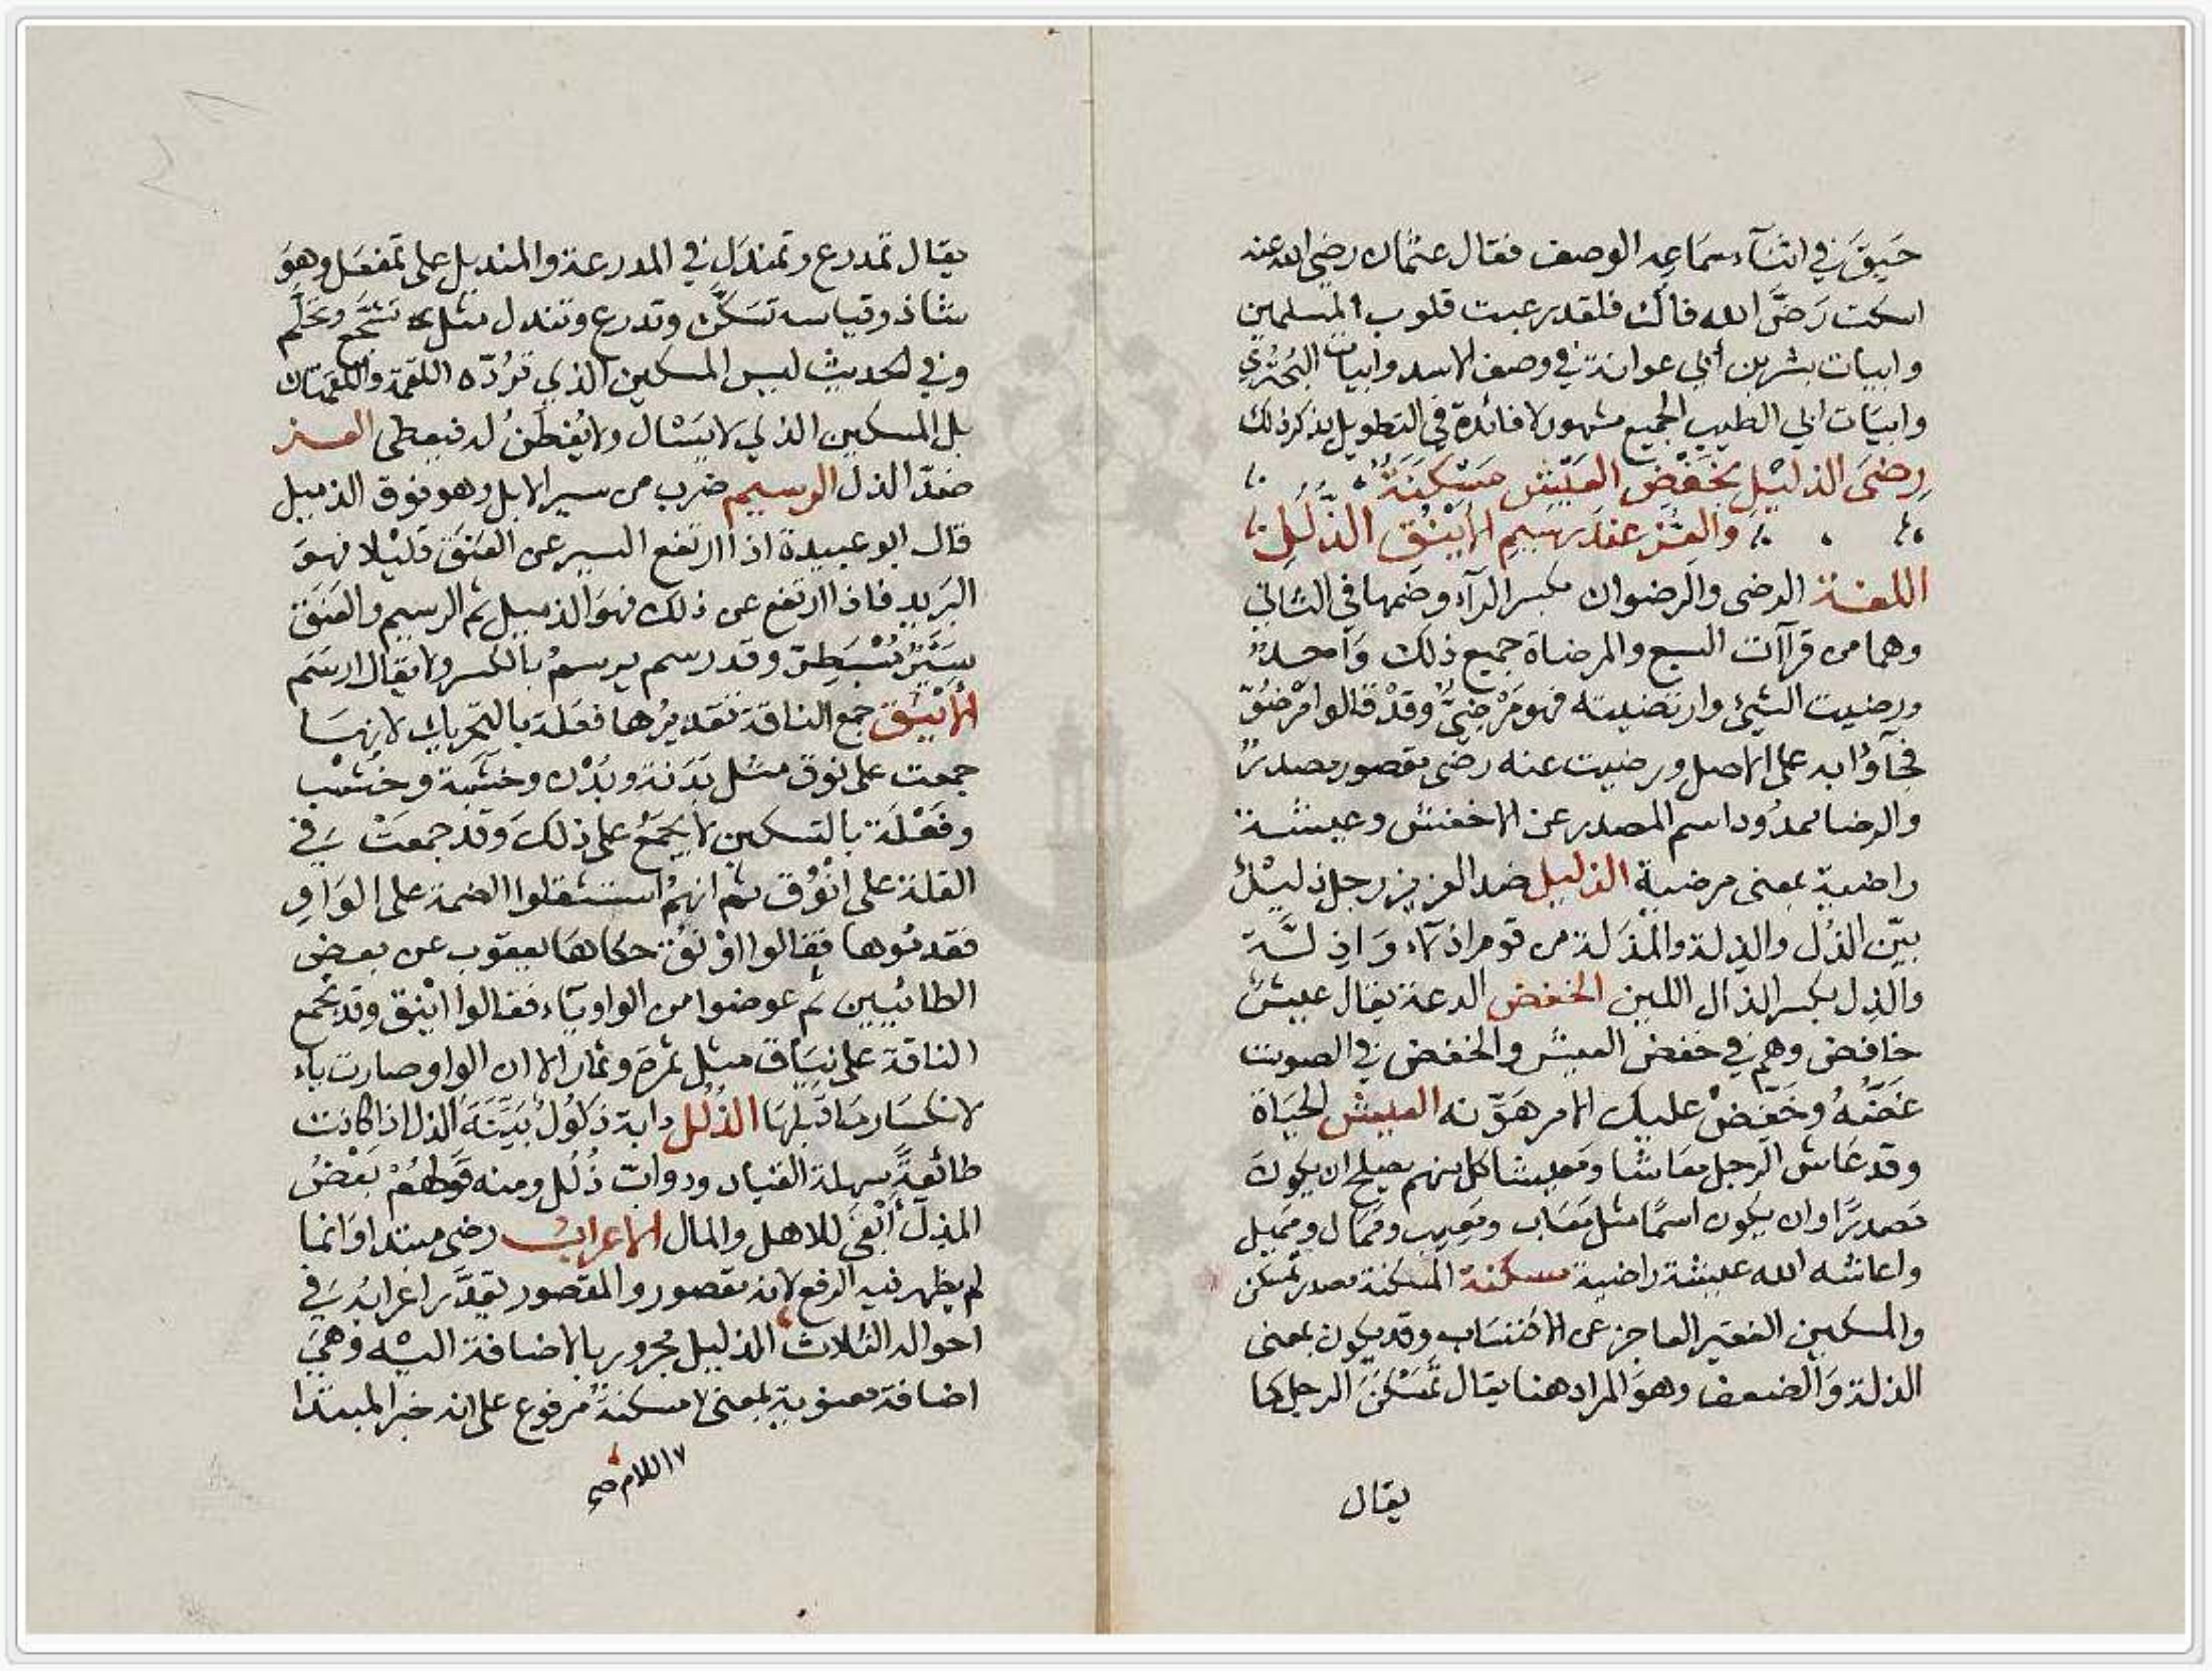 حَيِقَ في اثناء سمَاعِه الوصف فقال عثمان رضي الله عنه
اسكت رَضَّ الله فاك فلقد رعبت قلوب المسلمين
وابيات بشر بن أبي عوانة في وصف الاسد وابيات البُحْتُري
وابيَات ابي الطيب الجميع مشهور لا فائدة في التطويل بذكر ذلك
رِضَى الذليْلِ بخَفْضِ العَيْشِ مَسْكَنَةٌ
والعِزُّ عندَ رَسِيمِ الاَيْنُقِ الذُّلُلِ
اللغة الرضى والرضوان بكسر الرآء وضمها في الثاني
وهما من قراآت السبع والمرضاة جميع ذلك وَاحدٌ
ورضيت الشيئ وارتضيته فهو مَرْضِيٌّ وقدْ قالوا مَرْضُوّ
فجآؤا به على الاصل ورضيت عنه رضى مقصور مصدرٌ
والرضا ممدُود اسم المصدر عن الاخفش وعيشة
راضية بمعنى مرضية الذليل ضد العزيز رجل ذليْلٌ
بيّن الذُل والذلة والمذَلة من قوم اذلآء وَاذِلَّة
والذِل بكسر الذال اللين الخفض الدعة يقال عيش
خافض وهم في خفض العيش والخفض في الصوت
غَضُّهُ وخَفِّضْ عليك الامر هَوِّنه العيش الحيَاة
وقد عَاش الرجل معَاشا ومَعيشا كل منهم يصلح ان يكون
مَصدرًا وان يكون اسمًا مثل مَعَاب ومَعِيب ومَمَال ومَمِيل
واعاشه الله عيشة راضية مسكنة المسكنة مصدر تمسكن
والمسكين الفقير العاجز عن الاكتسَاب وقد يكون بمعنى
الذلة وَالضعف وهوَ المراد هنا يقال تَمَسْكَنَ الرجل كما
يقال
يقال تمدرع وتمندَل في المدرعة والمنديل على تمفعَل وهوَ
شاذ وقياسه تَسَكَّن وتدرع وتندل مثل تشجَّع وتحَلَّم
وفي الحديث ليس المسكين الذي تَرُدّه اللقمة واللقمتان
بل المسكين الذي لا يَسْال ولا يُفطَنُ له فيعطى العز
ضدّ الذل الرسيم ضرب من سير الابل وهو فوق الذميل
قال ابو عبيدة اذا ارتفع السير عن العَنَق قليْلا فهوَ
التزيد فاذا ارتفع عن ذلك فهوَ الذميل ثم الرسيم والعَنَق
سَيْرٌ مُسْبَطِرّ وقد رسم يرسمُ بالكسر ولا يقال ارسَم
الأيْنُق جمع الناقة تقديرُها فعَلة بالتحريك لانهَا
جمعت على نوق مثل بَدَنة وبُدْن وخشَبَة وخشْب
وفَعْلَة بالتسكين لا يُجمَعُ على ذلكَ وَقد جمعَتْ في
القلة على انْوُق ثم انهمُ استثقلوا الضمة على الوَاوِ
فقدموها فقالوا اوْنُق حكاهَا يعقوب عن بعض
الطائيين ثم عوضوا من الواو يآء فقالوا اَيْنق وقد تجمع
الناقة على نيَاق مثل ثمرَة وثمار الا ان الواو صارت ياء
لانكسَار مَا قبلهَا الذُلُل دابة ذَلوُلٌ بَيّنَةَ الذل اذا كانت
طائعةً سهلة القياد ودوابّ ذُلُل ومنه قولهُمْ بَعْضُ
الذِلّ أبْقَى للاهل والمال الاعراب رضى مبتدا وَانما
لم يظهر فيه الرفع لانه مقصور والمقصور يقدَّر اعرابُه في
احواله الثلاث الذليل مجرور بالاضافة اليه وَهيَ
اضافة معنوية بمعنى لا مسكنةٌ مرفوع على انه خبر المبتدا
اللام صح